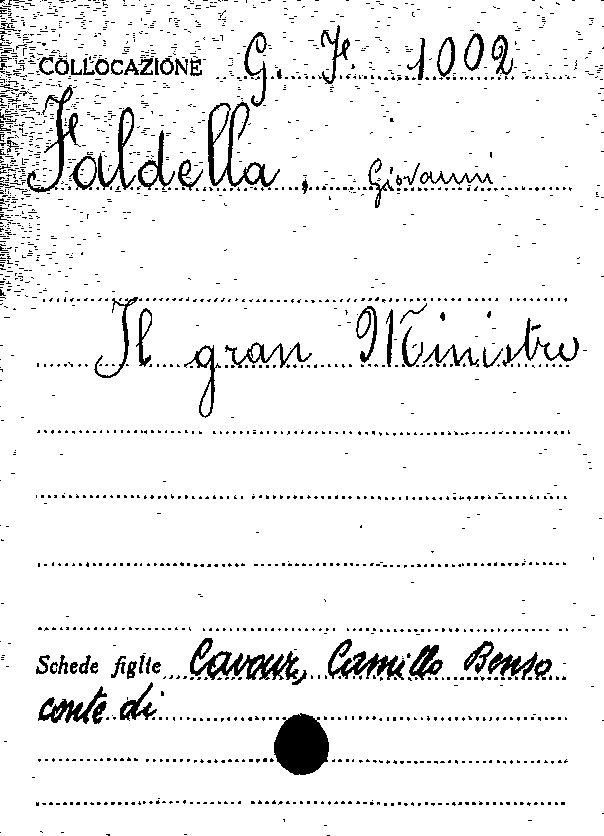 COLLOCAZIONE G. F. 1002
Faldella, Giovanni
Il gran Ministro
Schede figlie Cavour, Camillo Benso
conte di